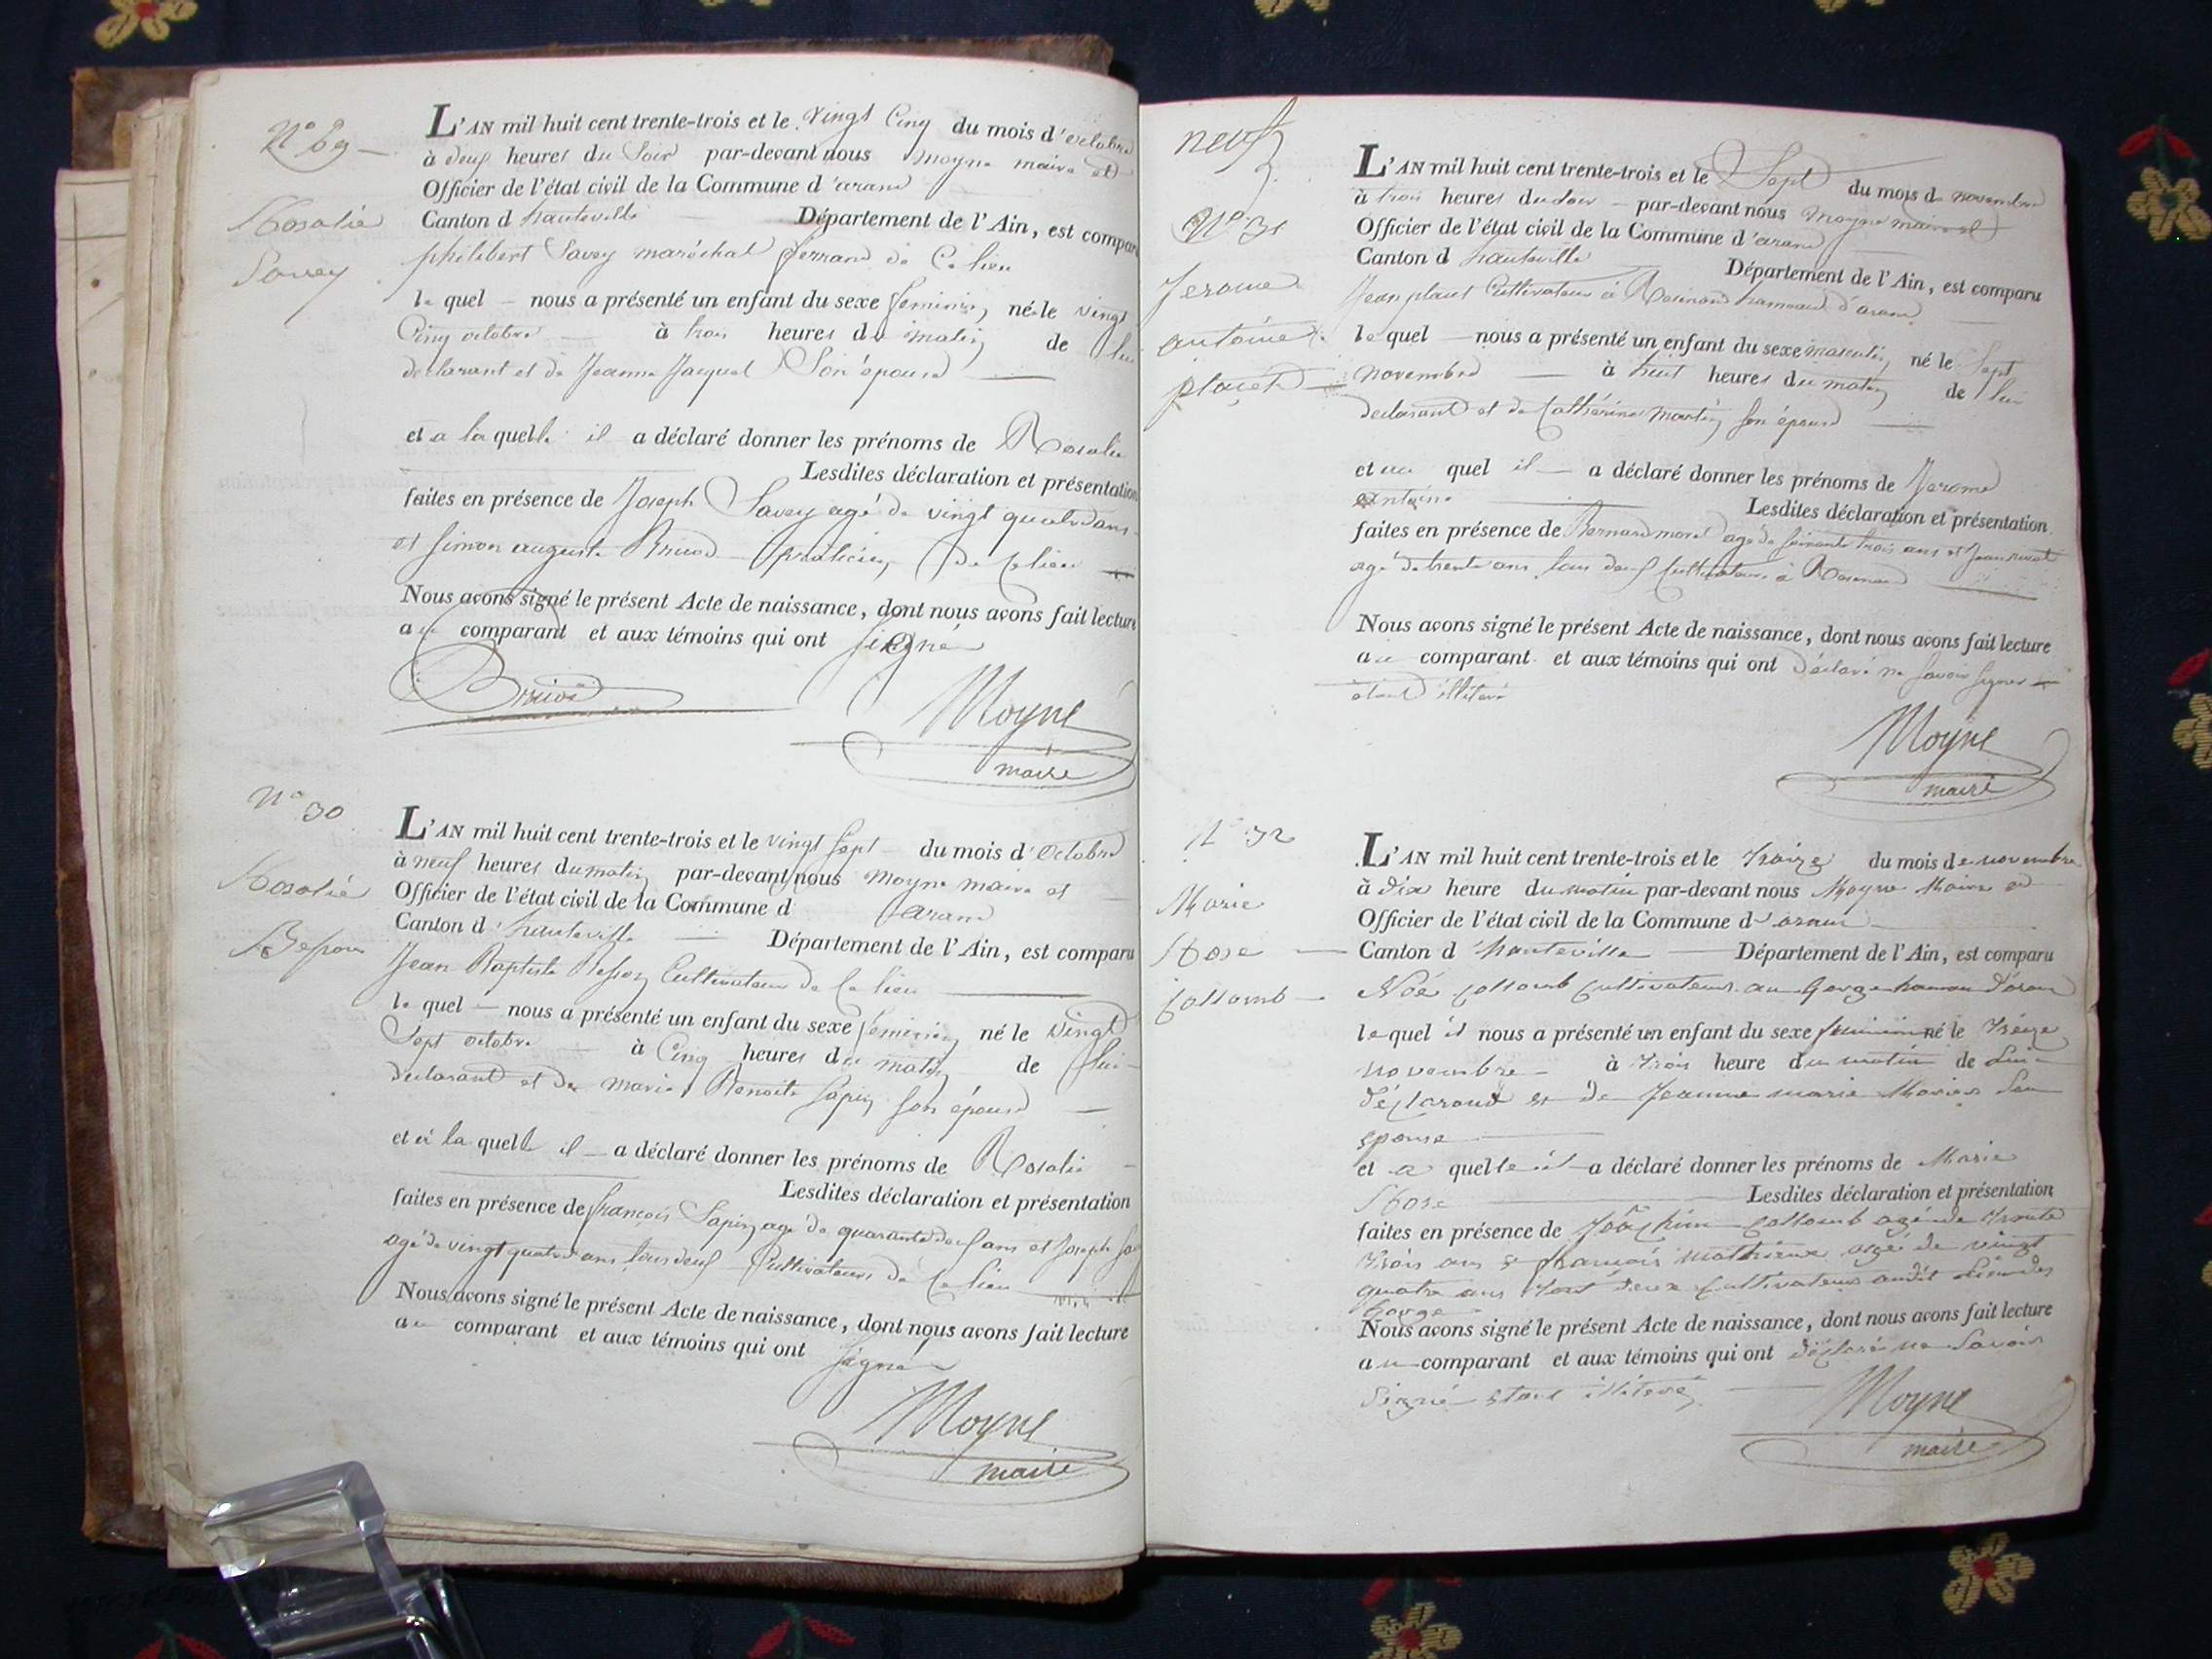 N° 29
Rosalie
Savey
L'AN mil huit cent trente-trois et le vingt Cinq du mois d'octobre
à deux heures du Soir par-devant nous Moyne maire et
Officier de l'état civil de la Commune d'aran
Canton d hauteville Département de l'Ain, est comparu
philibert Savey maréchal ferrand de Ce lieu
le quel nous a présenté un enfant du sexe feminin né le vingt
Cinq octobre à trois heures du matin de lui
declarant et de Jeanne Jacquet Son épouse
et a la quelle il a déclaré donner les prénoms de Rosalie
Lesdites déclaration et présentation
faites en présence de Joseph Savey agé de vingt quatre ans
et Simon auguste praticien de Ce lieu
Nous avons signé le présent Acte de naissance, dont nous avons fait lecture
au comparant et aux témoins qui ont signé
Moyne
maire
N° 30
Rosalie
Besson
L'AN mil huit cent trente-trois et le vingt Sept du mois d'Octobre
à neuf heures du matin par-devant nous Moyne maire et
Officier de l'état civil de la Commune d aran
Canton d'hauteville Département de l'Ain, est comparu
Jean Baptiste Besson Cultivateur de Ce lieu
le quel nous a présenté un enfant du sexe feminin né le vingt
Sept octobre à Cinq heures du matin de lui
declarant et de marie Benoite Sapin son épouse
et a la quelle il a déclaré donner les prénoms de Rosalie
Lesdites déclaration et présentation
faites en présence de françois Sapin agé de quarante deux ans et Joseph
agé de vingt quatre ans tous deux Cultivateurs de Ce lieu
Nous avons signé le présent Acte de naissance, dont nous avons fait lecture
au comparant et aux témoins qui ont signé
Moyne
maire
neuf
N° 31
Jerome
antoine
L'AN mil huit cent trente-trois et le Sept du mois de novembre
à trois heures du soir par-devant nous Moyne maire et
Officier de l'état civil de la Commune d'aran
Canton d hauteville Département de l'Ain, est comparu
Jean Cultivateur à hameau d'aran
le quel nous a présenté un enfant du sexe masculin né le Sept
novembre à huit heures du matin de lui
declarant et de Cathérine martin son épouse
et au quel il a déclaré donner les prénoms de Jerome
antoine Lesdites déclaration et présentation
faites en présence de Bernard morel agé de soixante trois ans et Jean
agé de trente ans tous deux Cultivateurs à
Nous avons signé le présent Acte de naissance, dont nous avons fait lecture
au comparant et aux témoins qui ont déclaré ne savoir signer
étant illiteré
Moyne
maire
N° 32
Marie
Rose
Collomb
L'AN mil huit cent trente-trois et le Traize du mois de novembre
à dix heure du matin par-devant nous Moyne Maire et
Officier de l'état civil de la Commune d'aran
Canton d'hauteville Département de l'Ain, est comparu
Noé Collomb Cultivateur au Gorge hamau d'aran
le quel il nous a présenté un enfant du sexe feminin né le Treize
novembre à trois heure du matin de Lui
déclarand et de Jeanne marie Son
épouse
et a quelle il a déclaré donner les prénoms de Marie
Rose Lesdites déclaration et présentation
faites en présence de Joachim Collomb agé de trente
trois ans et francois mathieux agé de vingt
quatre ans tous deux Cultivateurs audit Lieu des
Gorge
Nous avons signé le présent Acte de naissance, dont nous avons fait lecture
au comparant et aux témoins qui ont déclaré ne Savoir
Signé etant illiteré
Moyne
maire